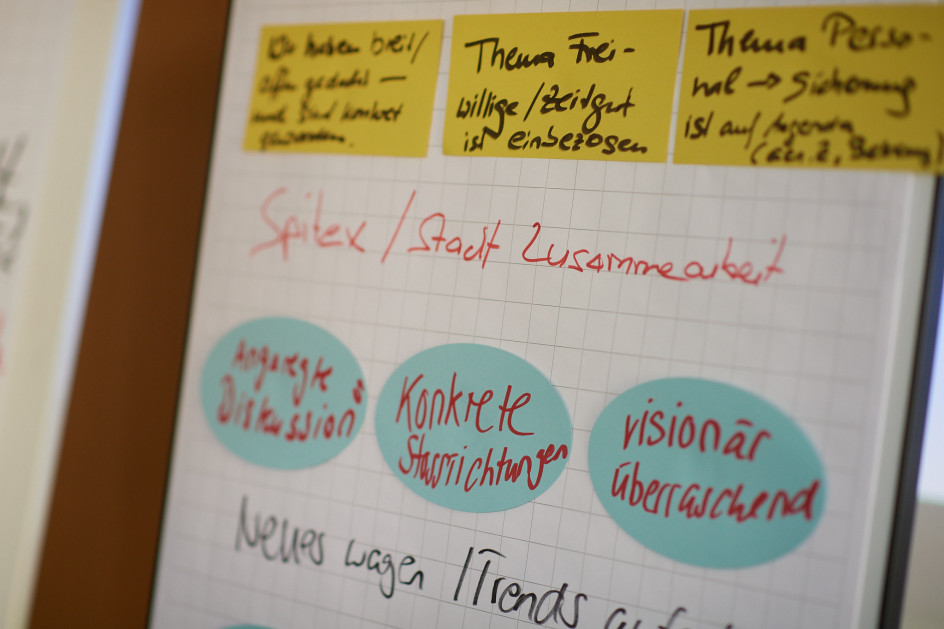 Wir haben breit/
offen gedacht —
und sind konkret
geworden.
Thema Frei-
willige/Zeitgut
ist einbezogen
Thema Perso-
nal → Sicherung
ist auf Agenda
Spitex / Stadt Zusammenarbeit
Angeregte
Diskussion
Konkrete
Stossrichtungen
visionär
überraschend
Neues wagen / Trends